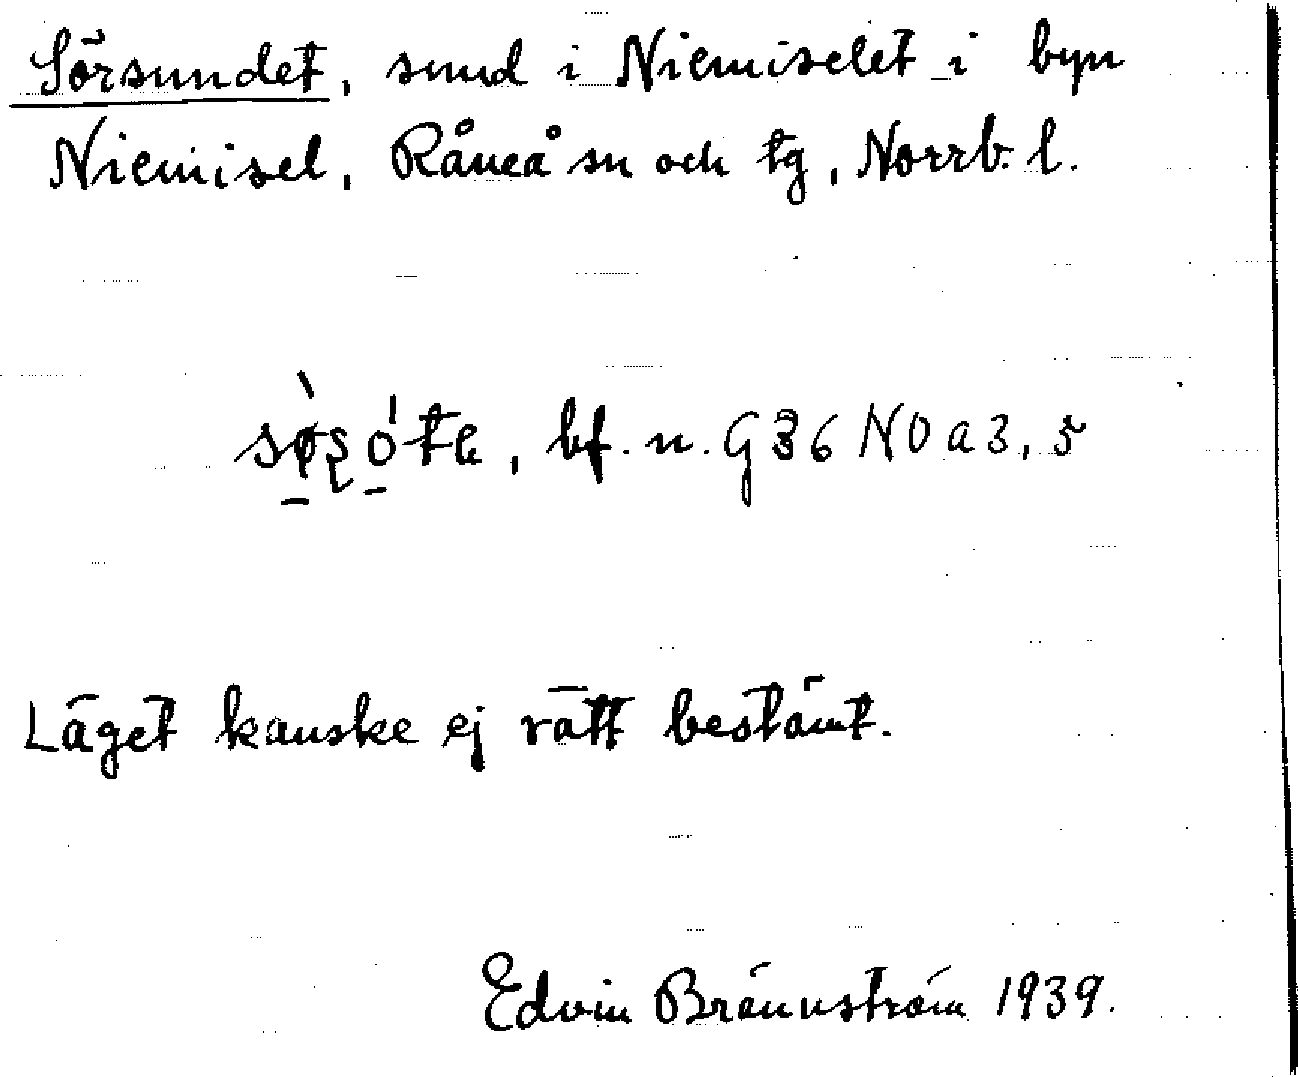 Sörsundet, sund i Niemiselet i byn
Niemisel, Råneå sn och tg, Norrb. l.
bf. n. G36 NO a 3,5
Läget kanske ej rätt bestämt.
Edvin Brännström 1939.